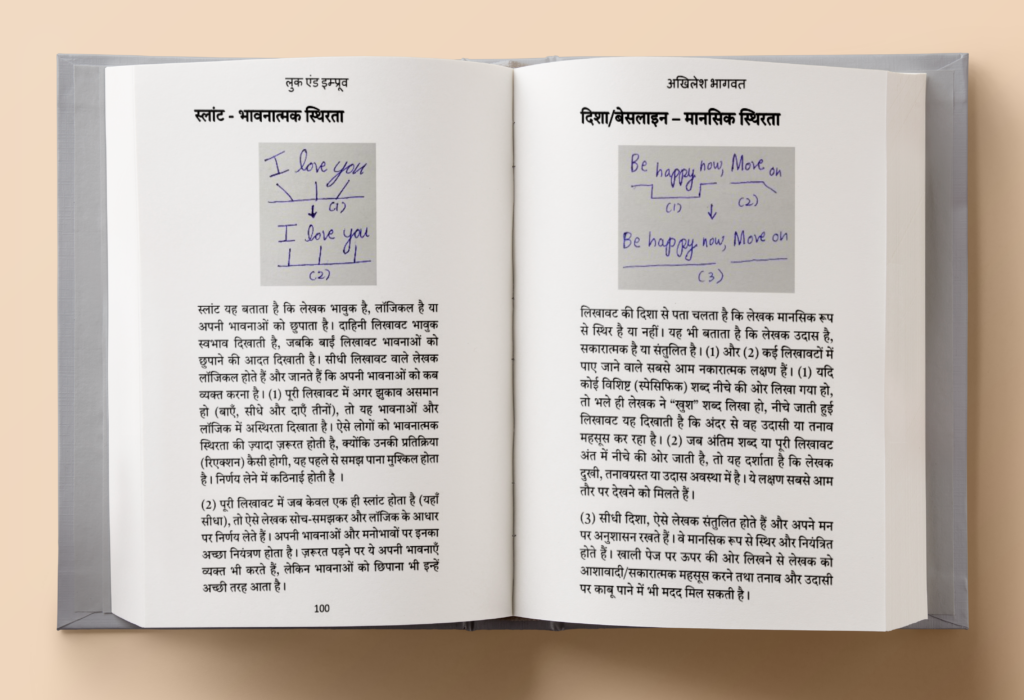 लुक एंड इम्प्रूव
स्लांट - भावनात्मक स्थिरता
I love you
(1)
I love you
(2)
स्लांट यह बताता है कि लेखक भावुक है, लॉजिकल है या
अपनी भावनाओं को छुपाता है। दाहिनी लिखावट भावुक
स्वभाव दिखाती है, जबकि बाईं लिखावट भावनाओं को
छुपाने की आदत दिखाती है। सीधी लिखावट वाले लेखक
लॉजिकल होते हैं और जानते हैं कि अपनी भावनाओं को कब
व्यक्त करना है। (1) पूरी लिखावट में अगर झुकाव असमान
हो (बाएँ, सीधे और दाएँ तीनों), तो यह भावनाओं और
लॉजिक में अस्थिरता दिखाता है। ऐसे लोगों को भावनात्मक
स्थिरता की ज़्यादा ज़रूरत होती है, क्योंकि उनकी प्रतिक्रिया
(रिएक्शन) कैसी होगी, यह पहले से समझ पाना मुश्किल होता
है। निर्णय लेने में कठिनाई होती है ।
(2) पूरी लिखावट में जब केवल एक ही स्लांट होता है (यहाँ
सीधा), तो ऐसे लेखक सोच-समझकर और लॉजिक के आधार
पर निर्णय लेते हैं। अपनी भावनाओं और मनोभावों पर इनका
अच्छा नियंत्रण होता है। ज़रूरत पड़ने पर ये अपनी भावनाएँ
व्यक्त भी करते हैं, लेकिन भावनाओं को छिपाना भी इन्हें
अच्छी तरह आता है।
100
अखिलेश भागवत
दिशा/बेसलाइन – मानसिक स्थिरता
Be happy now, Move on
(1) (2)
Be happy now, Move on
(3)
लिखावट की दिशा से पता चलता है कि लेखक मानसिक रूप
से स्थिर है या नहीं। यह भी बताता है कि लेखक उदास है,
सकारात्मक है या संतुलित है। (1) और (2) कई लिखावटों में
पाए जाने वाले सबसे आम नकारात्मक लक्षण हैं। (1) यदि
कोई विशिष्ट (स्पेसिफिक) शब्द नीचे की ओर लिखा गया हो,
तो भले ही लेखक ने “खुश” शब्द लिखा हो, नीचे जाती हुई
लिखावट यह दिखाती है कि अंदर से वह उदासी या तनाव
महसूस कर रहा है। (2) जब अंतिम शब्द या पूरी लिखावट
अंत में नीचे की ओर जाती है, तो यह दर्शाता है कि लेखक
दुखी, तनावग्रस्त या उदास अवस्था में है। ये लक्षण सबसे आम
तौर पर देखने को मिलते हैं।
(3) सीधी दिशा, ऐसे लेखक संतुलित होते हैं और अपने मन
पर अनुशासन रखते हैं। वे मानसिक रूप से स्थिर और नियंत्रित
होते हैं। खाली पेज पर ऊपर की ओर लिखने से लेखक को
आशावादी/सकारात्मक महसूस करने तथा तनाव और उदासी
पर काबू पाने में भी मदद मिल सकती है।